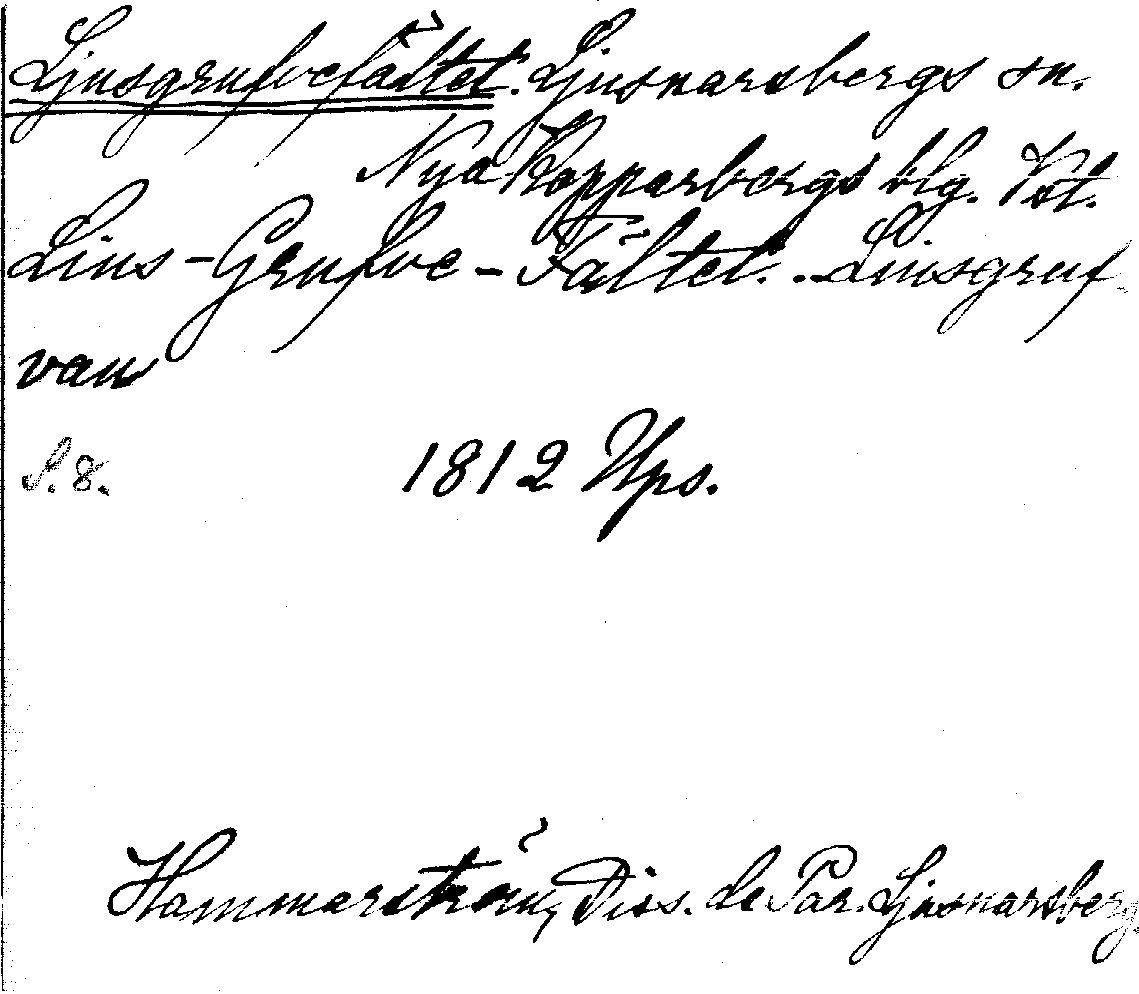 Ljusgrufvefältet. Ljusnarsbergs sn.
Nya Kopparbergs blg. Vst.
Lius-Grufve-Fältet. .. Liusgruf-
van
S. 8. 1812 Ups.
Hammarström, Diss. de Par. Ljusnarsberg.